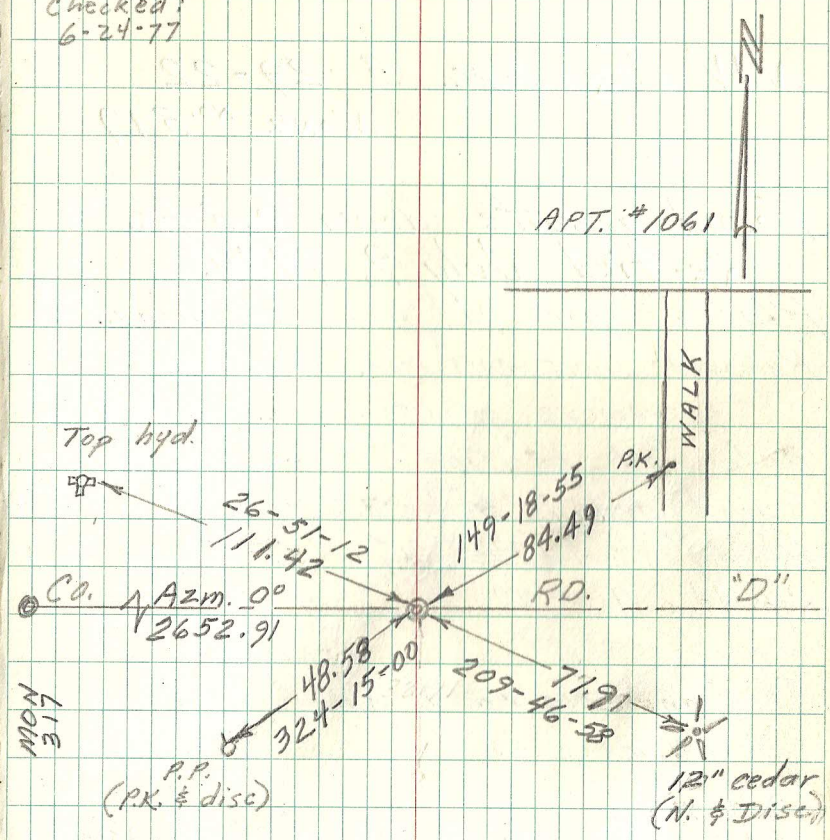 Checked:
6-24-77
N
APT. #1061
WALK
Top hyd.
P.K.
26-51-12
111.42
149-18-55
84.49
Co.
Azm. 0°
2652.91
RD.
"D"
48.58
324-15-00
71.91
209-46-58
MON
317
P.P.
(P.K. & disc)
12" cedar
(N. & Disc)